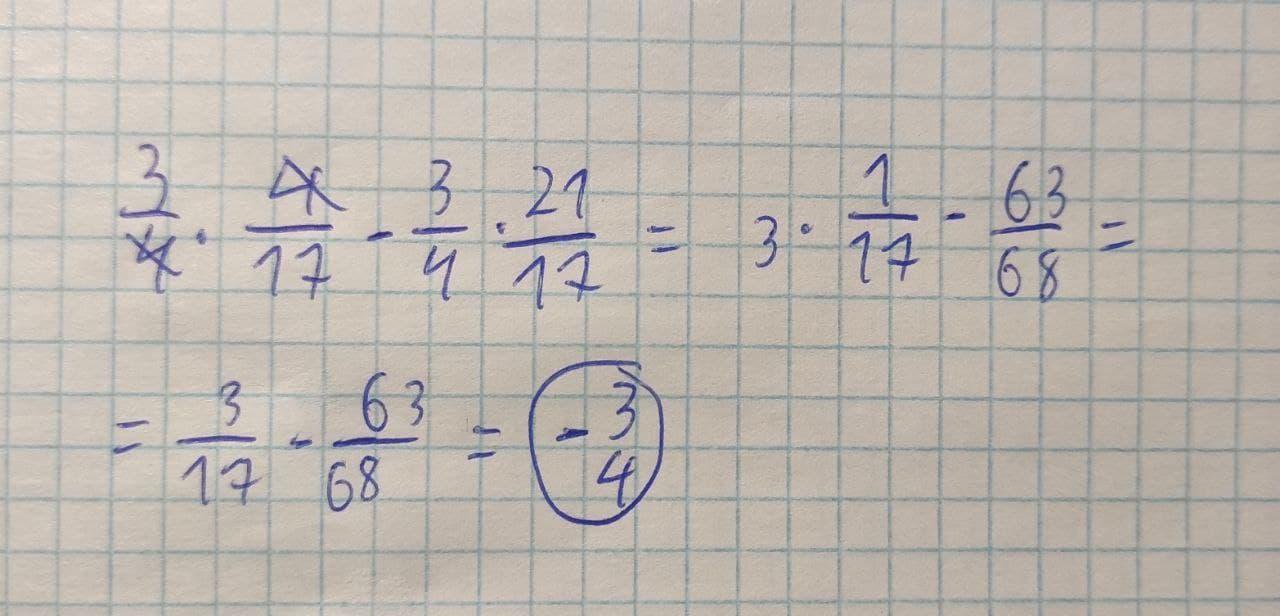 3/4 · 4/17 - 3/4 · 21/17 = 3 · 1/17 - 63/68 =
= 3/17 - 63/68 = - 3/4